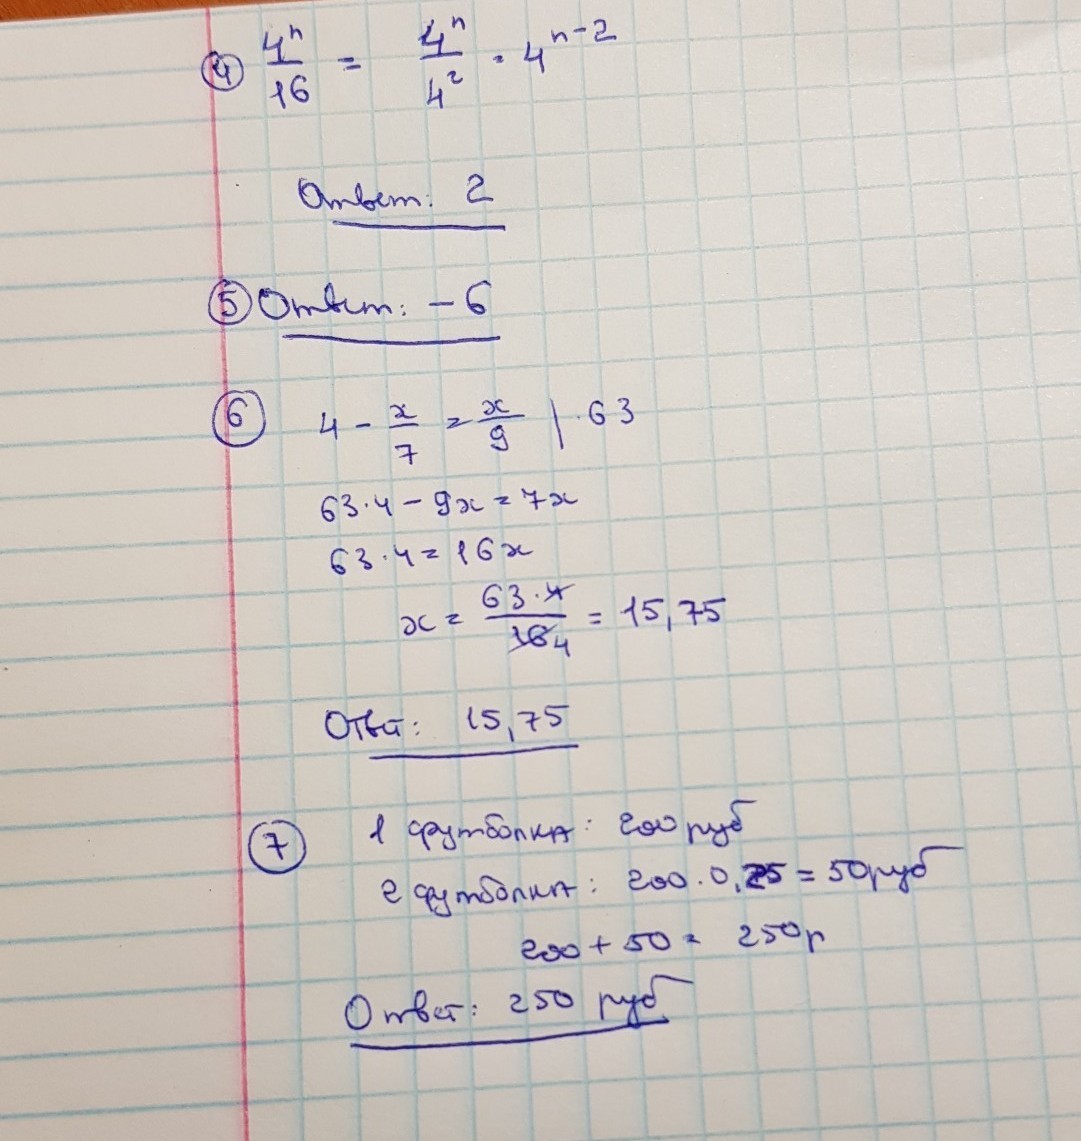 ④ 4ⁿ/16 = 4ⁿ/4² = 4ⁿ⁻²
Ответ: 2
⑤ Ответ: -6
⑥ 4 - x/7 = x/9 | · 63
63·4 - 9x = 7x
63·4 = 16x
x = 63·4/16 4 = 15,75
Ответ: 15,75
⑦ 1 футболка: 200 руб
2 футболка: 200 · 0,25 = 50 руб
200 + 50 = 250 р
Ответ: 250 руб